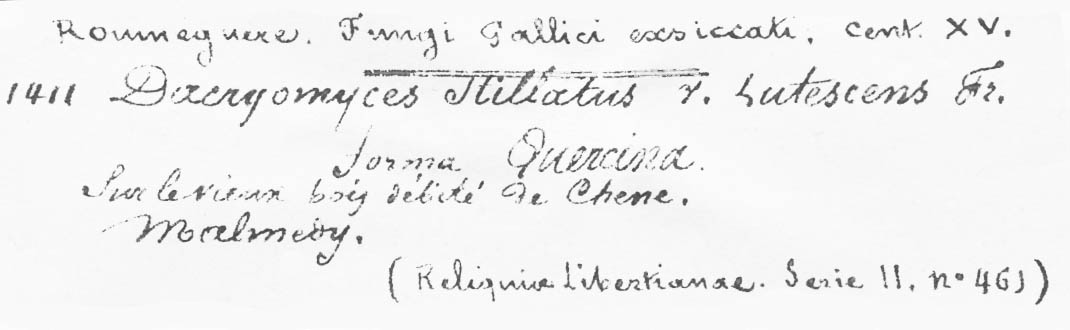 Roumeguere. Fungi Gallici exsiccati, cent. XV.
1411 Dacryomyces Stillatus v. Lutescens Fr.
forma Quercina.
Sur le vieux bois débité de Chene.
Malmedy.
(Reliquiae Libertianae. Serie II. n° 461)